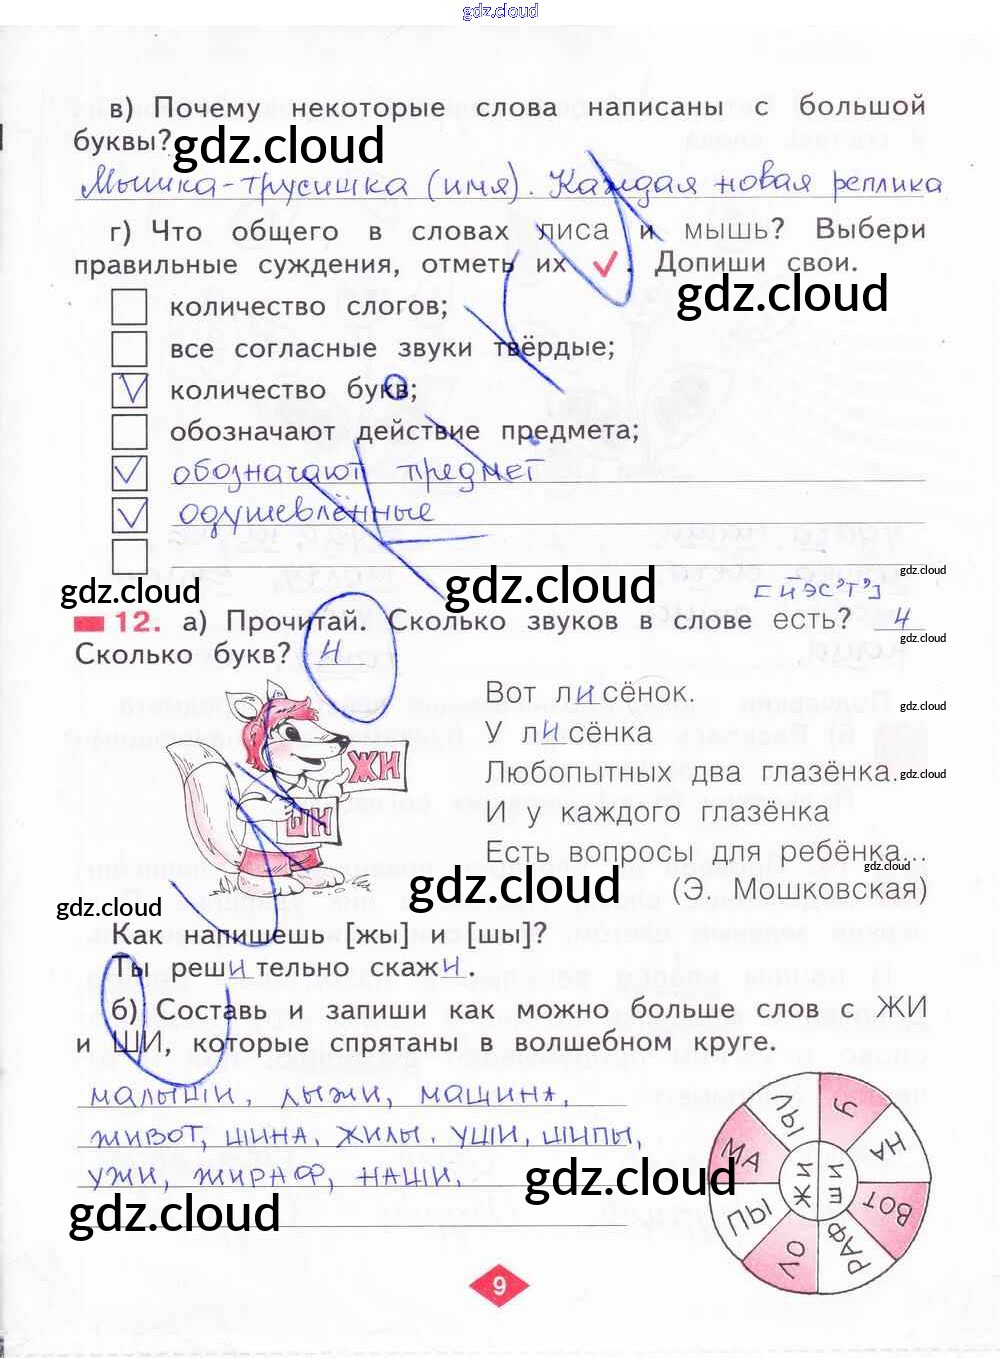 gdz.cloud
в) Почему некоторые слова написаны с большой
буквы?
gdz.cloud
Мышка-трусишка (имя). Каждая новая реплика
г) Что общего в словах лиса и мышь? Выбери
правильные суждения, отметь их ✓. Допиши свои.
gdz.cloud
количество слогов;
все согласные звуки твёрдые;
V количество букв;
обозначают действие предмета;
V обозначают предмет
V одушевлённые
gdz.cloud
gdz.cloud
gdz.cloud
[йэс'т']
12. а) Прочитай. Сколько звуков в слове есть? 4
gdz.cloud
Сколько букв? 4
Вот лисёнок.
gdz.cloud
У лисёнка
Любопытных два глазёнка.
gdz.cloud
И у каждого глазёнка
Есть вопросы для ребёнка...
gdz.cloud
(Э. Мошковская)
gdz.cloud
gdz.cloud
ЖИ
ШИ
Как напишешь [жы] и [шы]?
Ты решительно скажи.
б) Составь и запиши как можно больше слов с ЖИ
и ШИ, которые спрятаны в волшебном круге.
малыши, лыжи, машина,
живот, шина, жилы, уши, шипы,
ужи, жираф, наши.
gdz.cloud
gdz.cloud
У
НА
ВОТ
РАФ
ЛО
ПЫ
МА
ЛЫ
ЖИ
ШИ
9